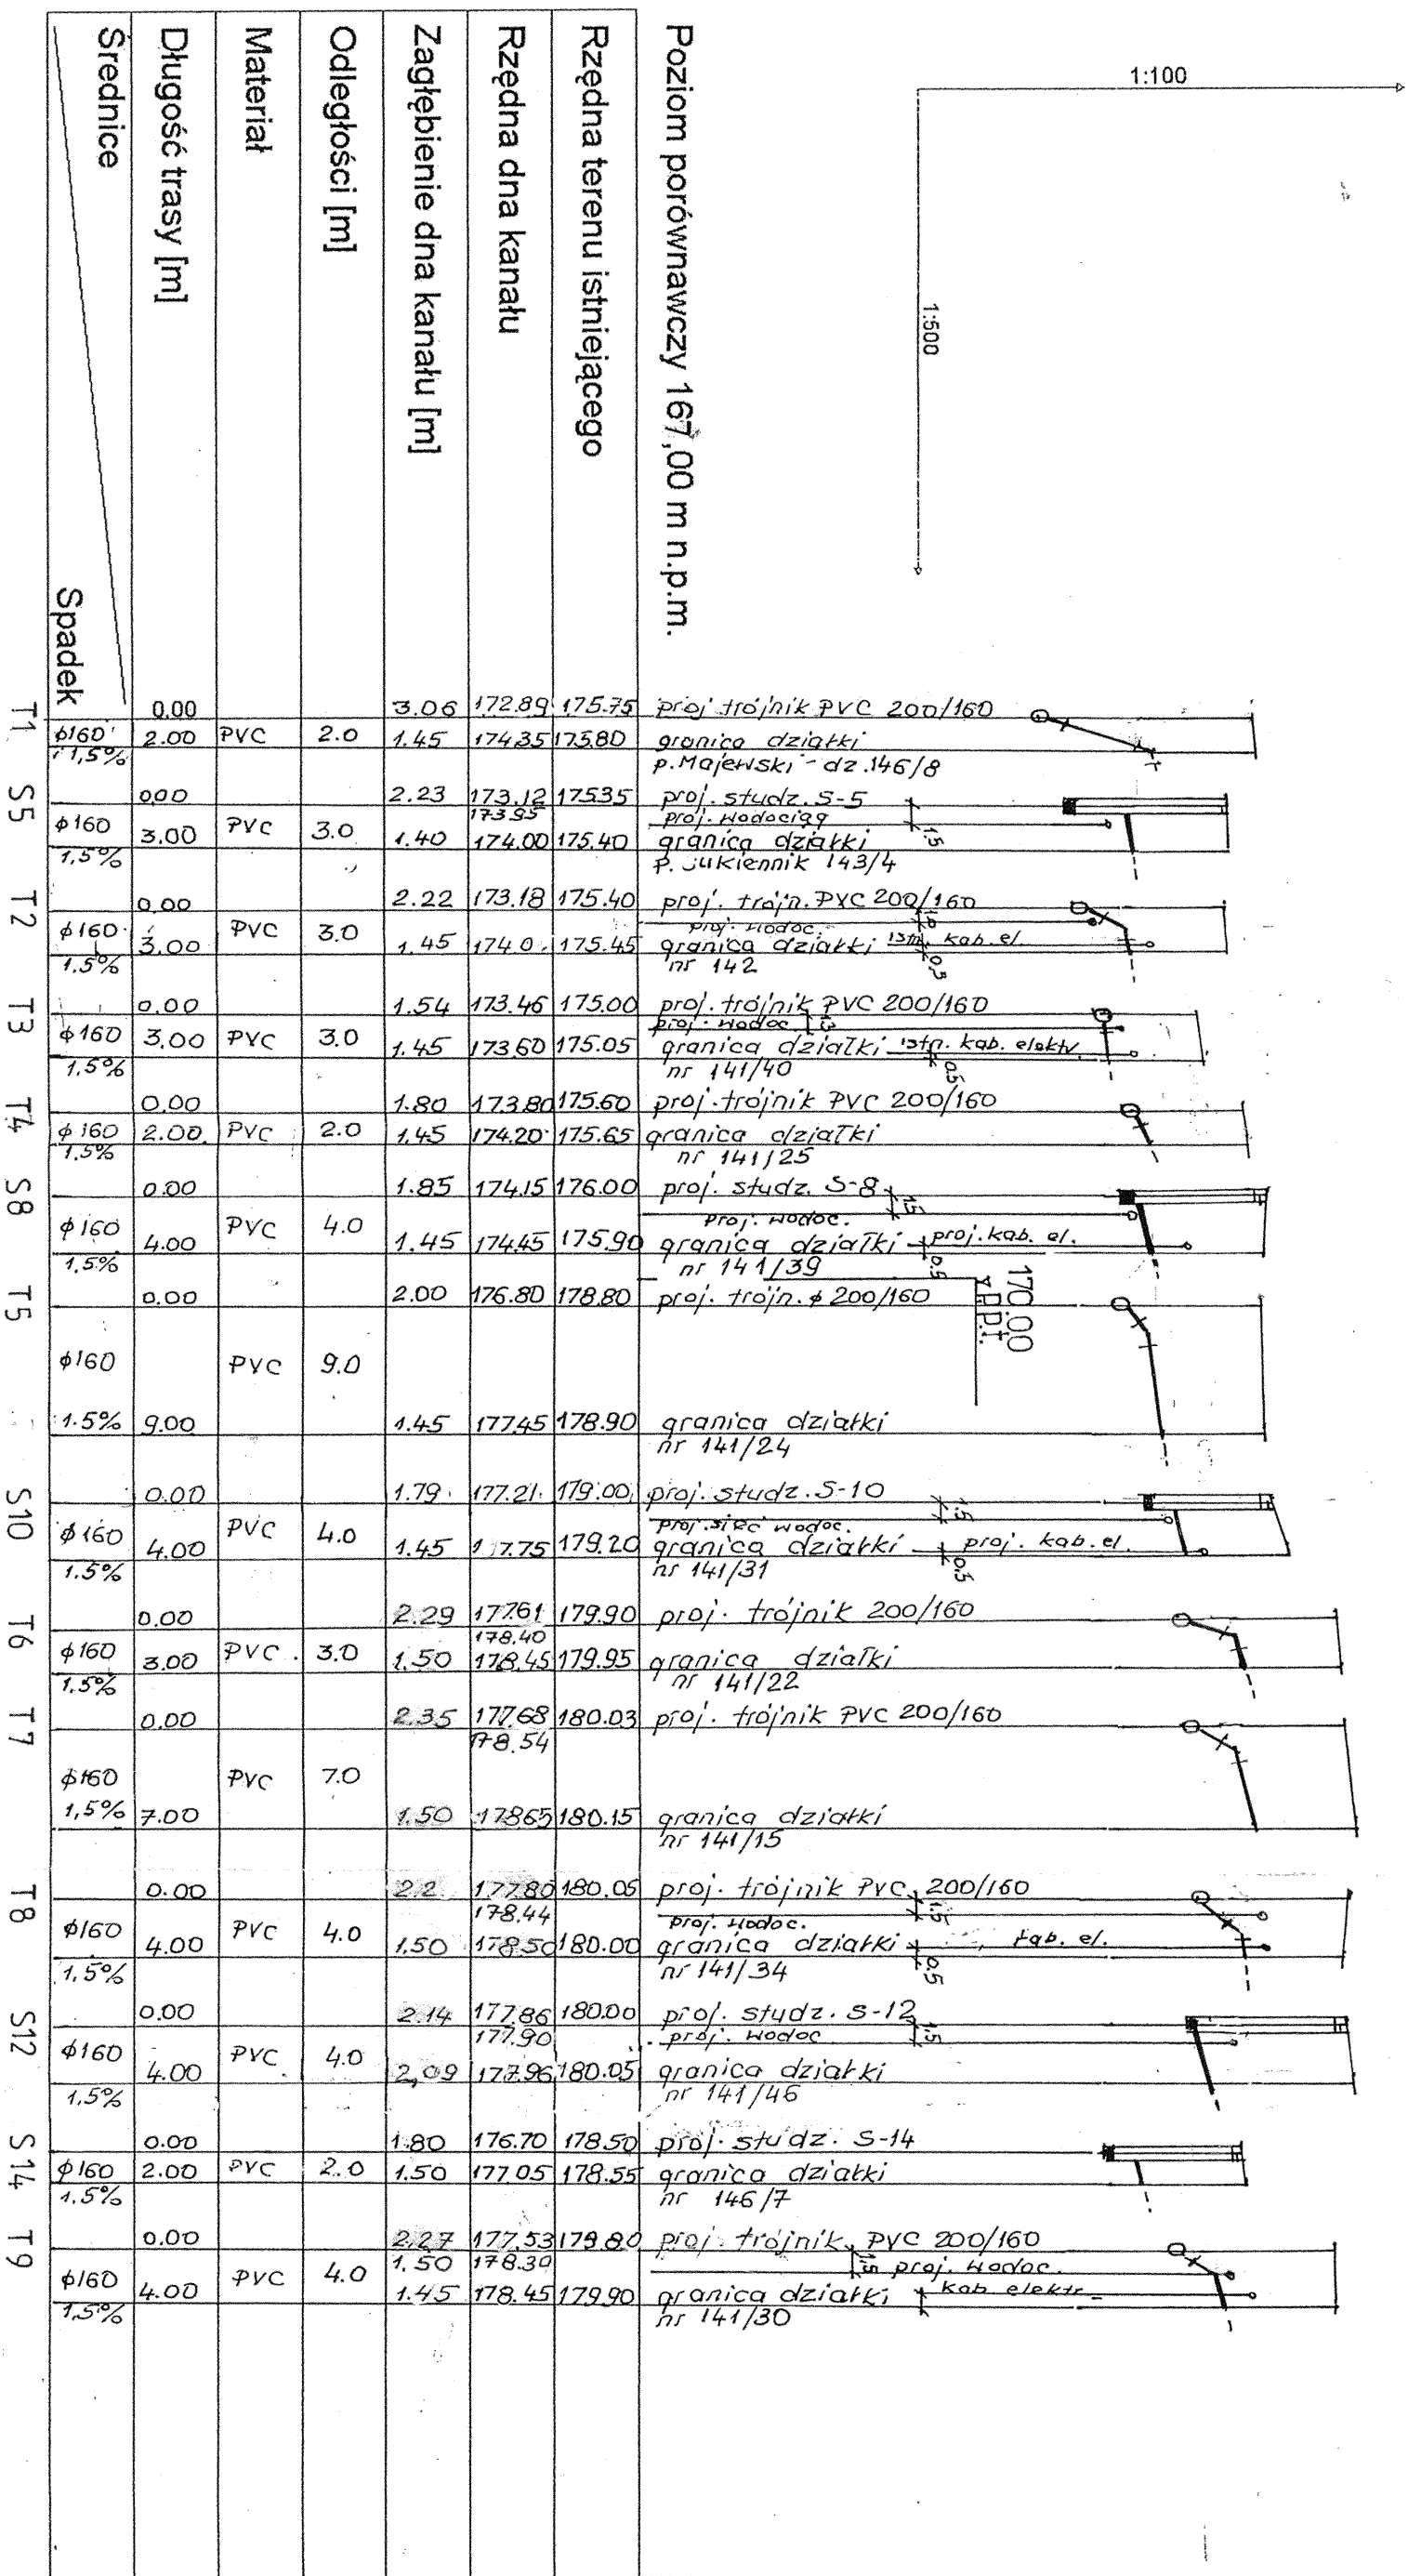 1:100
1:500
Poziom porównawczy 167,00 m n.p.m.
Rzędna terenu istniejącego
Rzędna dna kanału
Zagłębienie dna kanału [m]
Odległości [m]
Materiał
Długość trasy [m]
Średnice
Spadek
T1
0.00 3.06 172.89 175.75 proj trójnik PVC 200/160
φ160 2.00 PVC 2.0 1.45 174.35 175.80 granica działki
1,5% p. Majewski - dz. 146/8
S5
0.00 2.23 173.12 175.35 proj. studz. S-5
173.95 proj. wodociąg 1.5
φ160 3.00 PVC 3.0 1.40 174.00 175.40 granica działki
1,5% p. Jukiennik 143/4
T2
0.00 2.22 173.18 175.40 proj. trójn. PVC 200/160
proj. wodoc.
φ160 3.00 PVC 3.0 1.45 174.0 175.45 granica działki istn. kab. el.
1.5% nr 142 0,5
T3
0.00 1.54 173.46 175.00 proj. trójnik PVC 200/160
proj. wodoc. 1.3
φ160 3.00 PVC 3.0 1.45 173.60 175.05 granica działki istn. kab. elektr.
1,5% nr 141/40 0.5
T4
0.00 1.80 173.80 175.60 proj. trójnik PVC 200/160
φ160 2.00 PVC 2.0 1.45 174.20 175.65 granica działki
1.5% nr 141/25
S8
0.00 1.85 174.15 176.00 proj. studz. S-8 1.5
proj. wodoc.
φ160 4.00 PVC 4.0 1.45 174.45 175.90 granica działki proj. kab. el.
1,5% nr 141/39 0.5
170.00
p.p.t.
T5
0.00 2.00 176.80 178.80 proj. trójn. φ 200/160
φ160 PVC 9.0
1.5% 9.00 1.45 177.45 178.90 granica działki
nr 141/24
S10
0.00 1.79 177.21 179.00 proj. studz. S-10 1.5
proj. sieć wodoc.
φ160 4.00 PVC 4.0 1.45 177.75 179.20 granica działki proj. kab. el.
1.5% nr 141/31 0.5
T6
0.00 2.29 177.61 179.90 proj. trójnik 200/160
178.40
φ160 3.00 PVC 3.0 1.50 178.45 179.95 granica działki
1.5% nr 141/22
T7
0.00 2.35 177.68 180.03 proj. trójnik PVC 200/160
178.54
φ160 PVC 7.0
1,5% 7.00 1.50 178.65 180.15 granica działki
nr 141/15
T8
0.00 2.2 177.80 180.05 proj. trójnik PVC 200/160
178.44 proj. wodoc. 1.5
φ160 4.00 PVC 4.0 1.50 178.50 180.00 granica działki kab. el.
1,5% nr 141/34 0.5
S12
0.00 2.14 177.86 180.00 proj. studz. S-12
177.90 proj. wodoc 1.5
φ160 4.00 PVC 4.0 2,09 177.96 180.05 granica działki
1.5% nr 141/46
S14
0.00 1.80 176.70 178.50 proj. studz. S-14
φ160 2.00 PVC 2.0 1.50 177.05 178.55 granica działki
1.5% nr 146/7
T9
0.00 2.27 177.53 179.80 proj. trójnik PVC 200/160
1.50 178.39 1.5 proj. wodoc.
φ160 4.00 PVC 4.0 1.45 178.45 179.90 granica działki kab elektr.
1,5% nr 141/30